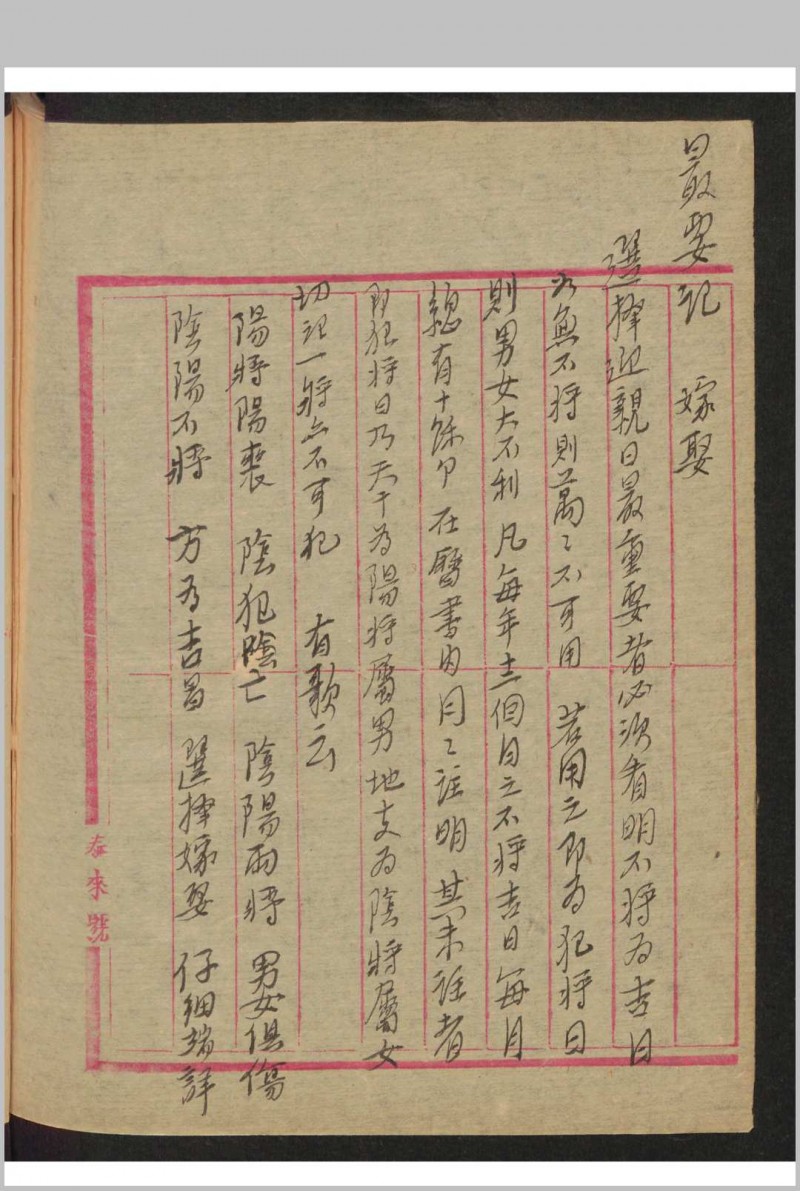 最要記 嫁娶
選擇迎親日最重要者必須看明不將為吉日
如無不將則萬〻不可用 若用之即為犯將日
則男女大不利 凡每年十二個月之不將吉日每月
總有十餘个 在曆書內月〻註明 其未註者
即犯將日乃天干為陽將屬男地支為陰將屬女
切記一將亦不可犯 有歌云
陽將陽喪 陰犯陰亡 陰陽兩將 男女俱傷
陰陽不將 方為吉昌 選擇嫁娶 仔細端詳
來號